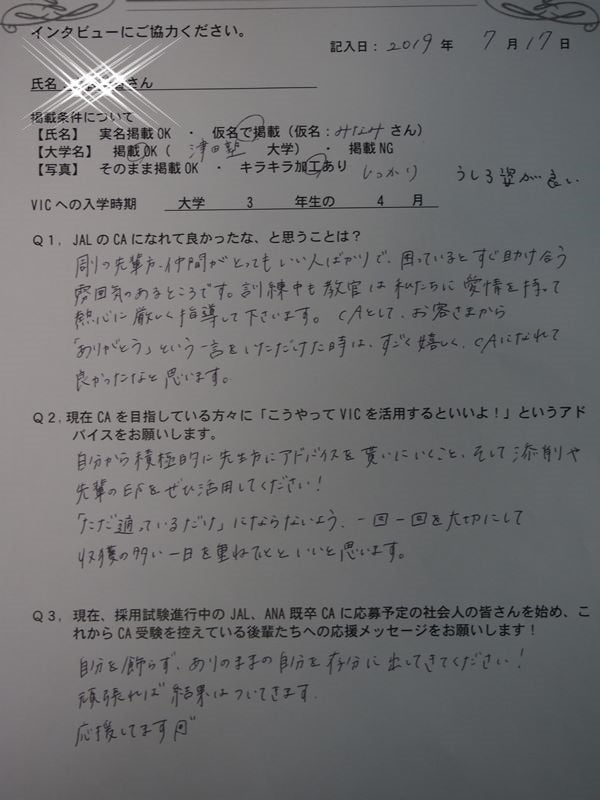 インタビューにご協力ください。
記入日：2019 年 7 月 17 日
氏名 さん
掲載条件について
【氏名】 実名掲載OK ・ 仮名で掲載（仮名：みなみ さん）
【大学名】 掲載OK（ 津田塾 大学） ・ 掲載NG
【写真】 そのまま掲載OK ・ キラキラ加工あり しっかり うしろ姿が良い
VICへの入学時期 大学 3 年生の 4 月
Q１．JALのCAになれて良かったな、と思うことは？
周りの先輩方、仲間がとってもいい人ばかりで、困っているとすぐ助け合う
雰囲気のあるところです。訓練中も教官は私たちに愛情を持って
熱心に厳しく指導して下さいます。CAとして、お客さまから
「ありがとう」という一言をいただけた時は、すごく嬉しく、CAになれて
良かったなと思います。
Q２．現在CAを目指している方々に「こうやってVICを活用するといいよ！」というアド
バイスをお願いします。
自分から積極的に先生方にアドバイスを貰いにいくこと、そして添削や
先輩のESをぜひ活用してください！
「ただ通っているだけ」にならないよう、一回一回を大切にして
収穫の多い一日を重ねていくといいと思います。
Q３．現在、採用試験進行中のJAL、ANA既卒CAに応募予定の社会人の皆さんを始め、こ
れからCA受験を控えている後輩たちへの応援メッセージをお願いします！
自分を飾らず、ありのままの自分を存分に出してきてください！
頑張れば結果はついてきます。
応援してます